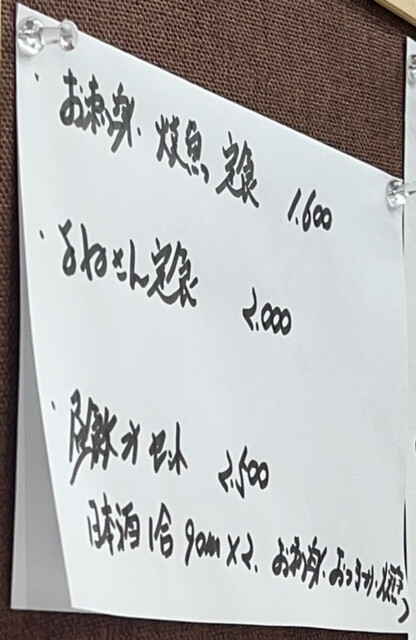 ・お刺身、焼魚、定食 1.600
・よねさん定食 2.000
・セット 2.500
日本酒1合 90ml×2、お刺身、おつまみ、焼魚